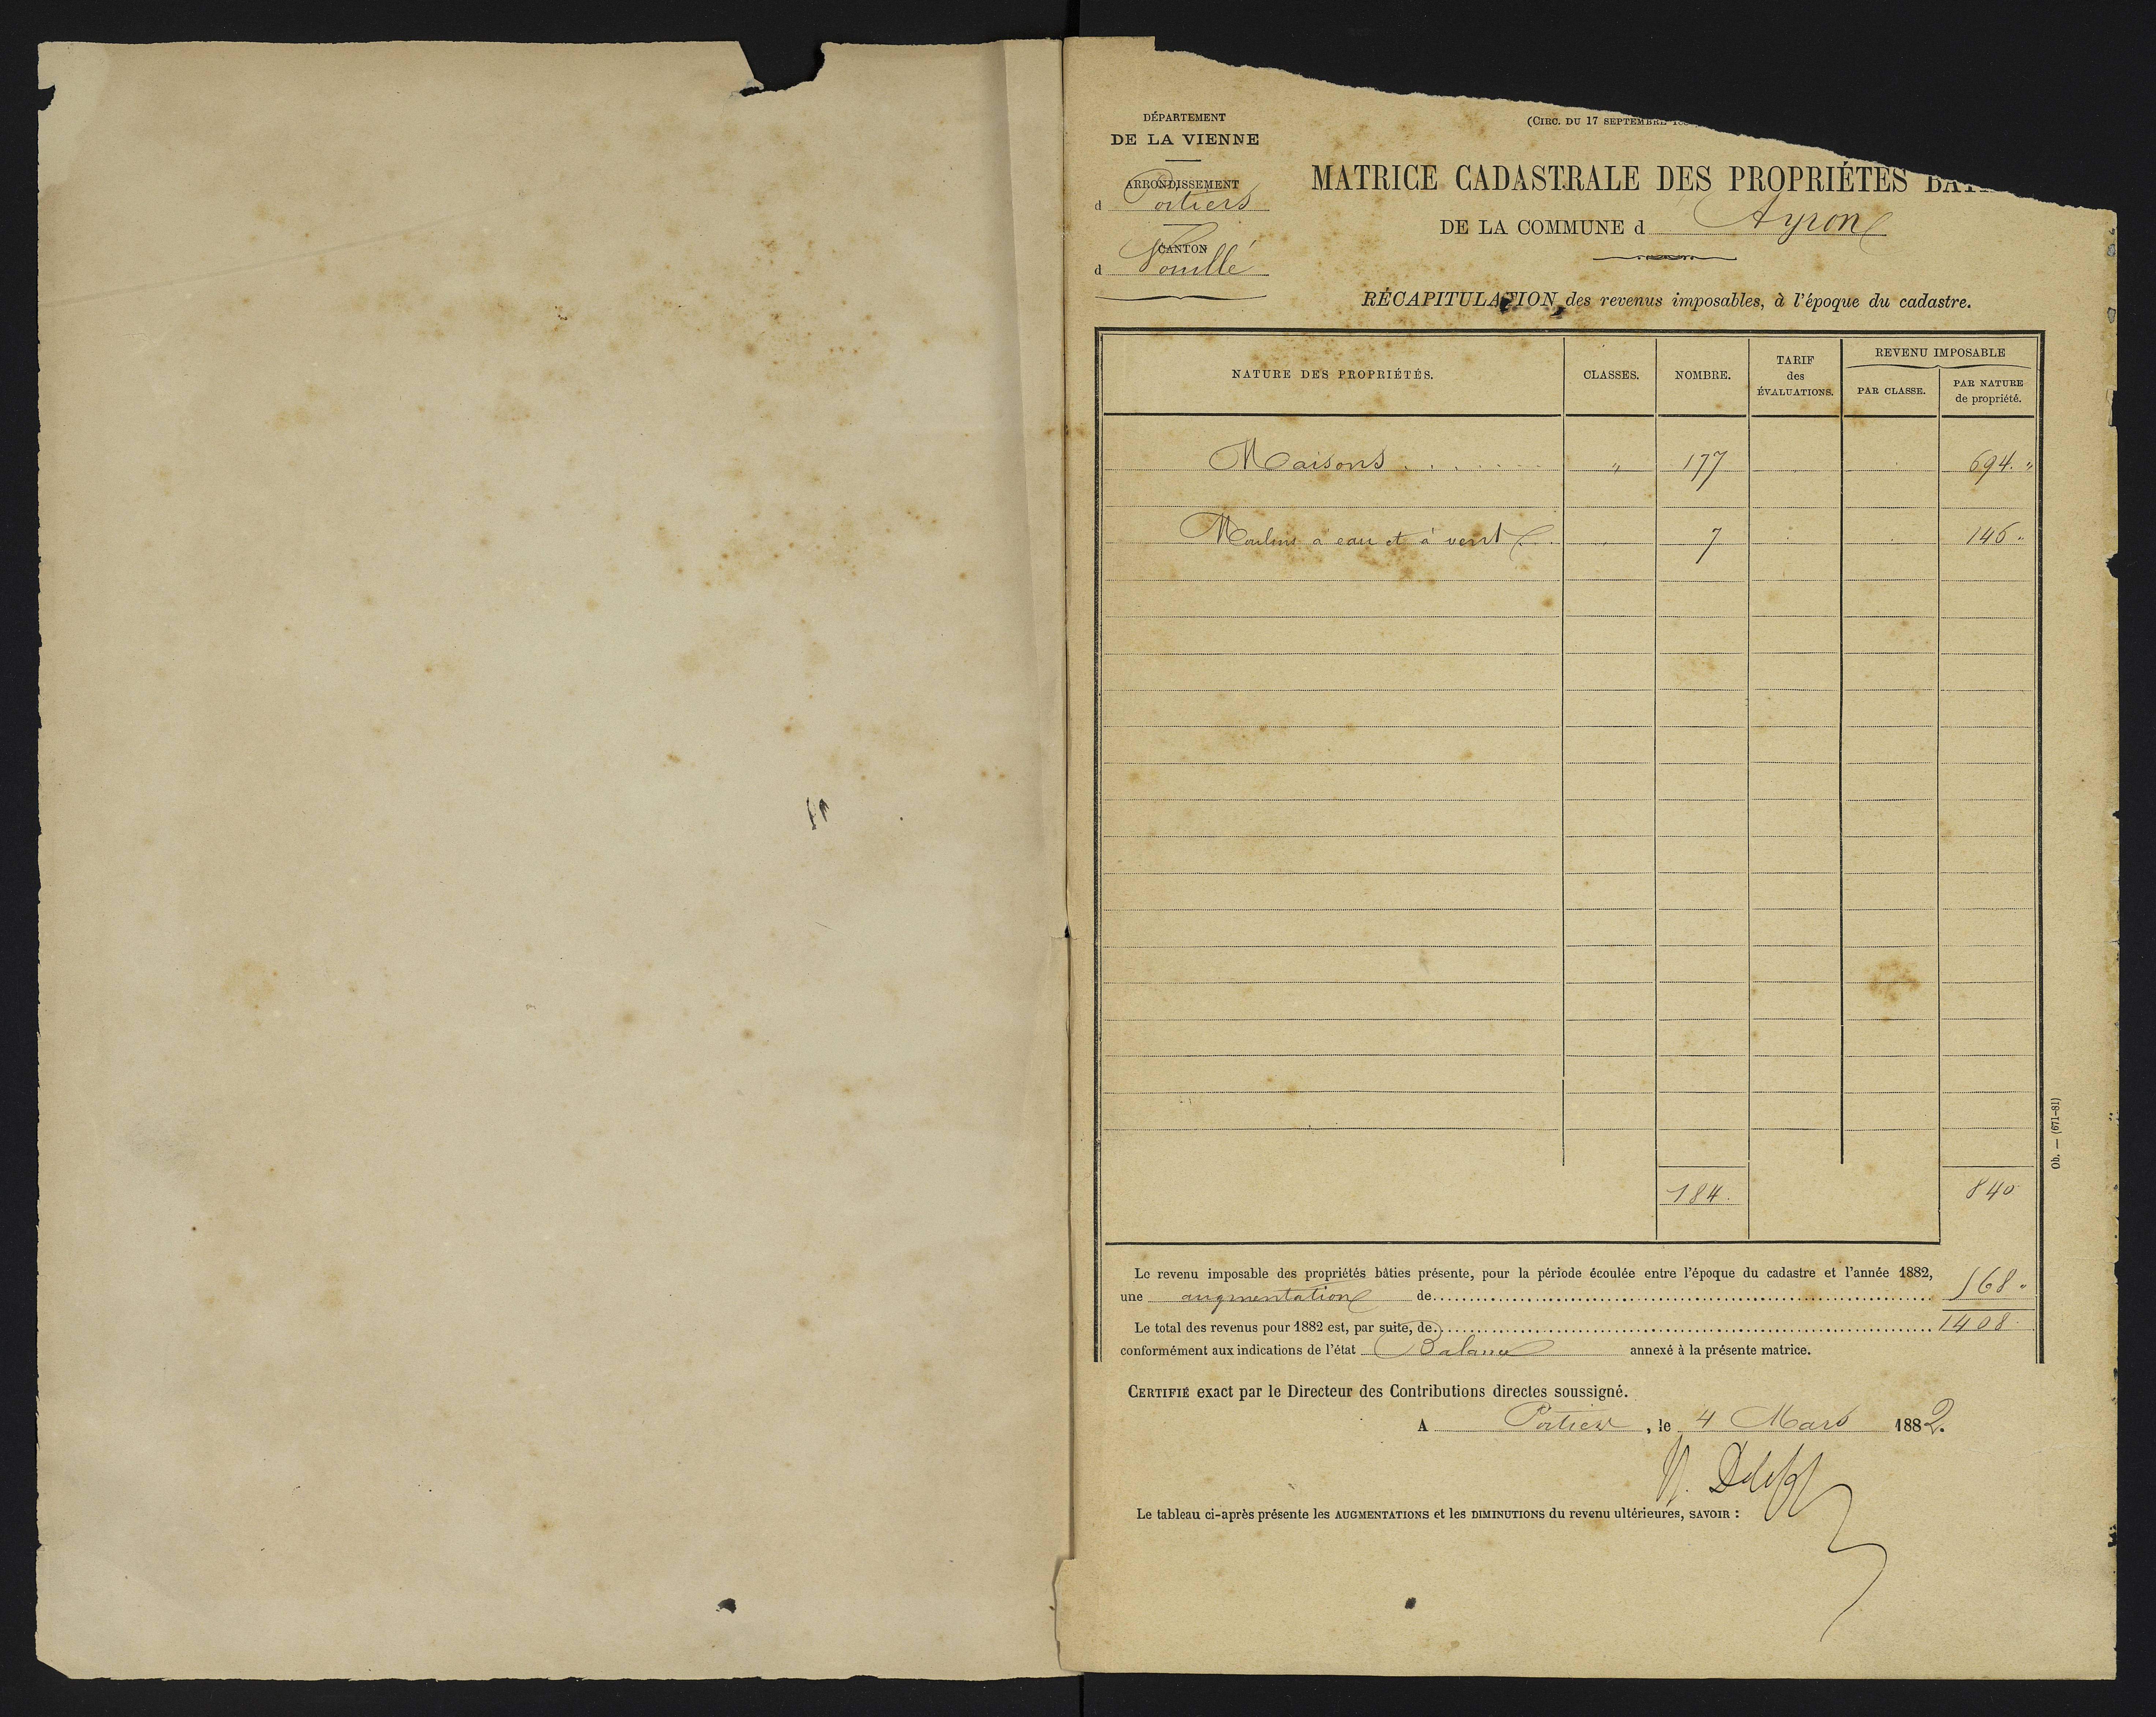 DÉPARTEMENT
DE LA VIENNE
ARRONDISSEMENT
d Poitiers
CANTON
d Vouillé
(CIRC. DU 17 SEPTEMBRE
MATRICE CADASTRALE DES PROPRIÉTÉS
DE LA COMMUNE d Ayron
RÉCAPITULATION des revenus imposables, à l'époque du cadastre.
NATURE DES PROPRIÉTÉS. CLASSES. NOMBRE. TARIF des ÉVALUATIONS. REVENU IMPOSABLE PAR CLASSE. PAR NATURE de propriété.
Maisons . . . . . . . " 177 694. "
Moulins à eau et à vent . . " 7 146 "
184. 840
Le revenu imposable des propriétés bâties présente, pour la période écoulée entre l'époque du cadastre et l'année 1882,
une augmentation de 568 "
Le total des revenus pour 1882 est, par suite, de 1408
conformément aux indications de l'état Balance annexé à la présente matrice.
CERTIFIÉ exact par le Directeur des Contributions directes soussigné.
A Poitiers, le 4 Mars 1882.
Le tableau ci-après présente les AUGMENTATIONS et les DIMINUTIONS du revenu ultérieures, SAVOIR :
Ob. — (671-81)